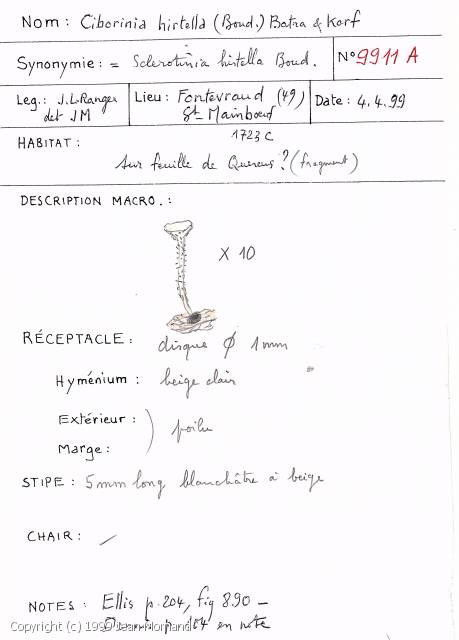 Nom : Ciborinia hirtella (Boud.) Batra & Korf
Synonymie : = Sclerotinia hirtella Boud.
N° 9911 A
Leg. : J.L. Ranger
det JM
Lieu : Fontevraud (49)
St Mainboeuf
Date : 4.4.99
HABITAT :
1723 C
sur feuille de Quercus ? (fragment)
DESCRIPTION MACRO. :
X 10
RÉCEPTACLE : disque Ø 1 mm
Hyménium : beige clair
Extérieur : ) poilu
Marge :
STIPE : 5 mm long blanchâtre à beige
CHAIR : /
NOTES : Ellis p. 204, fig 890 –
p. 104 en note
Copyright (c) 1999 Jean Mornand